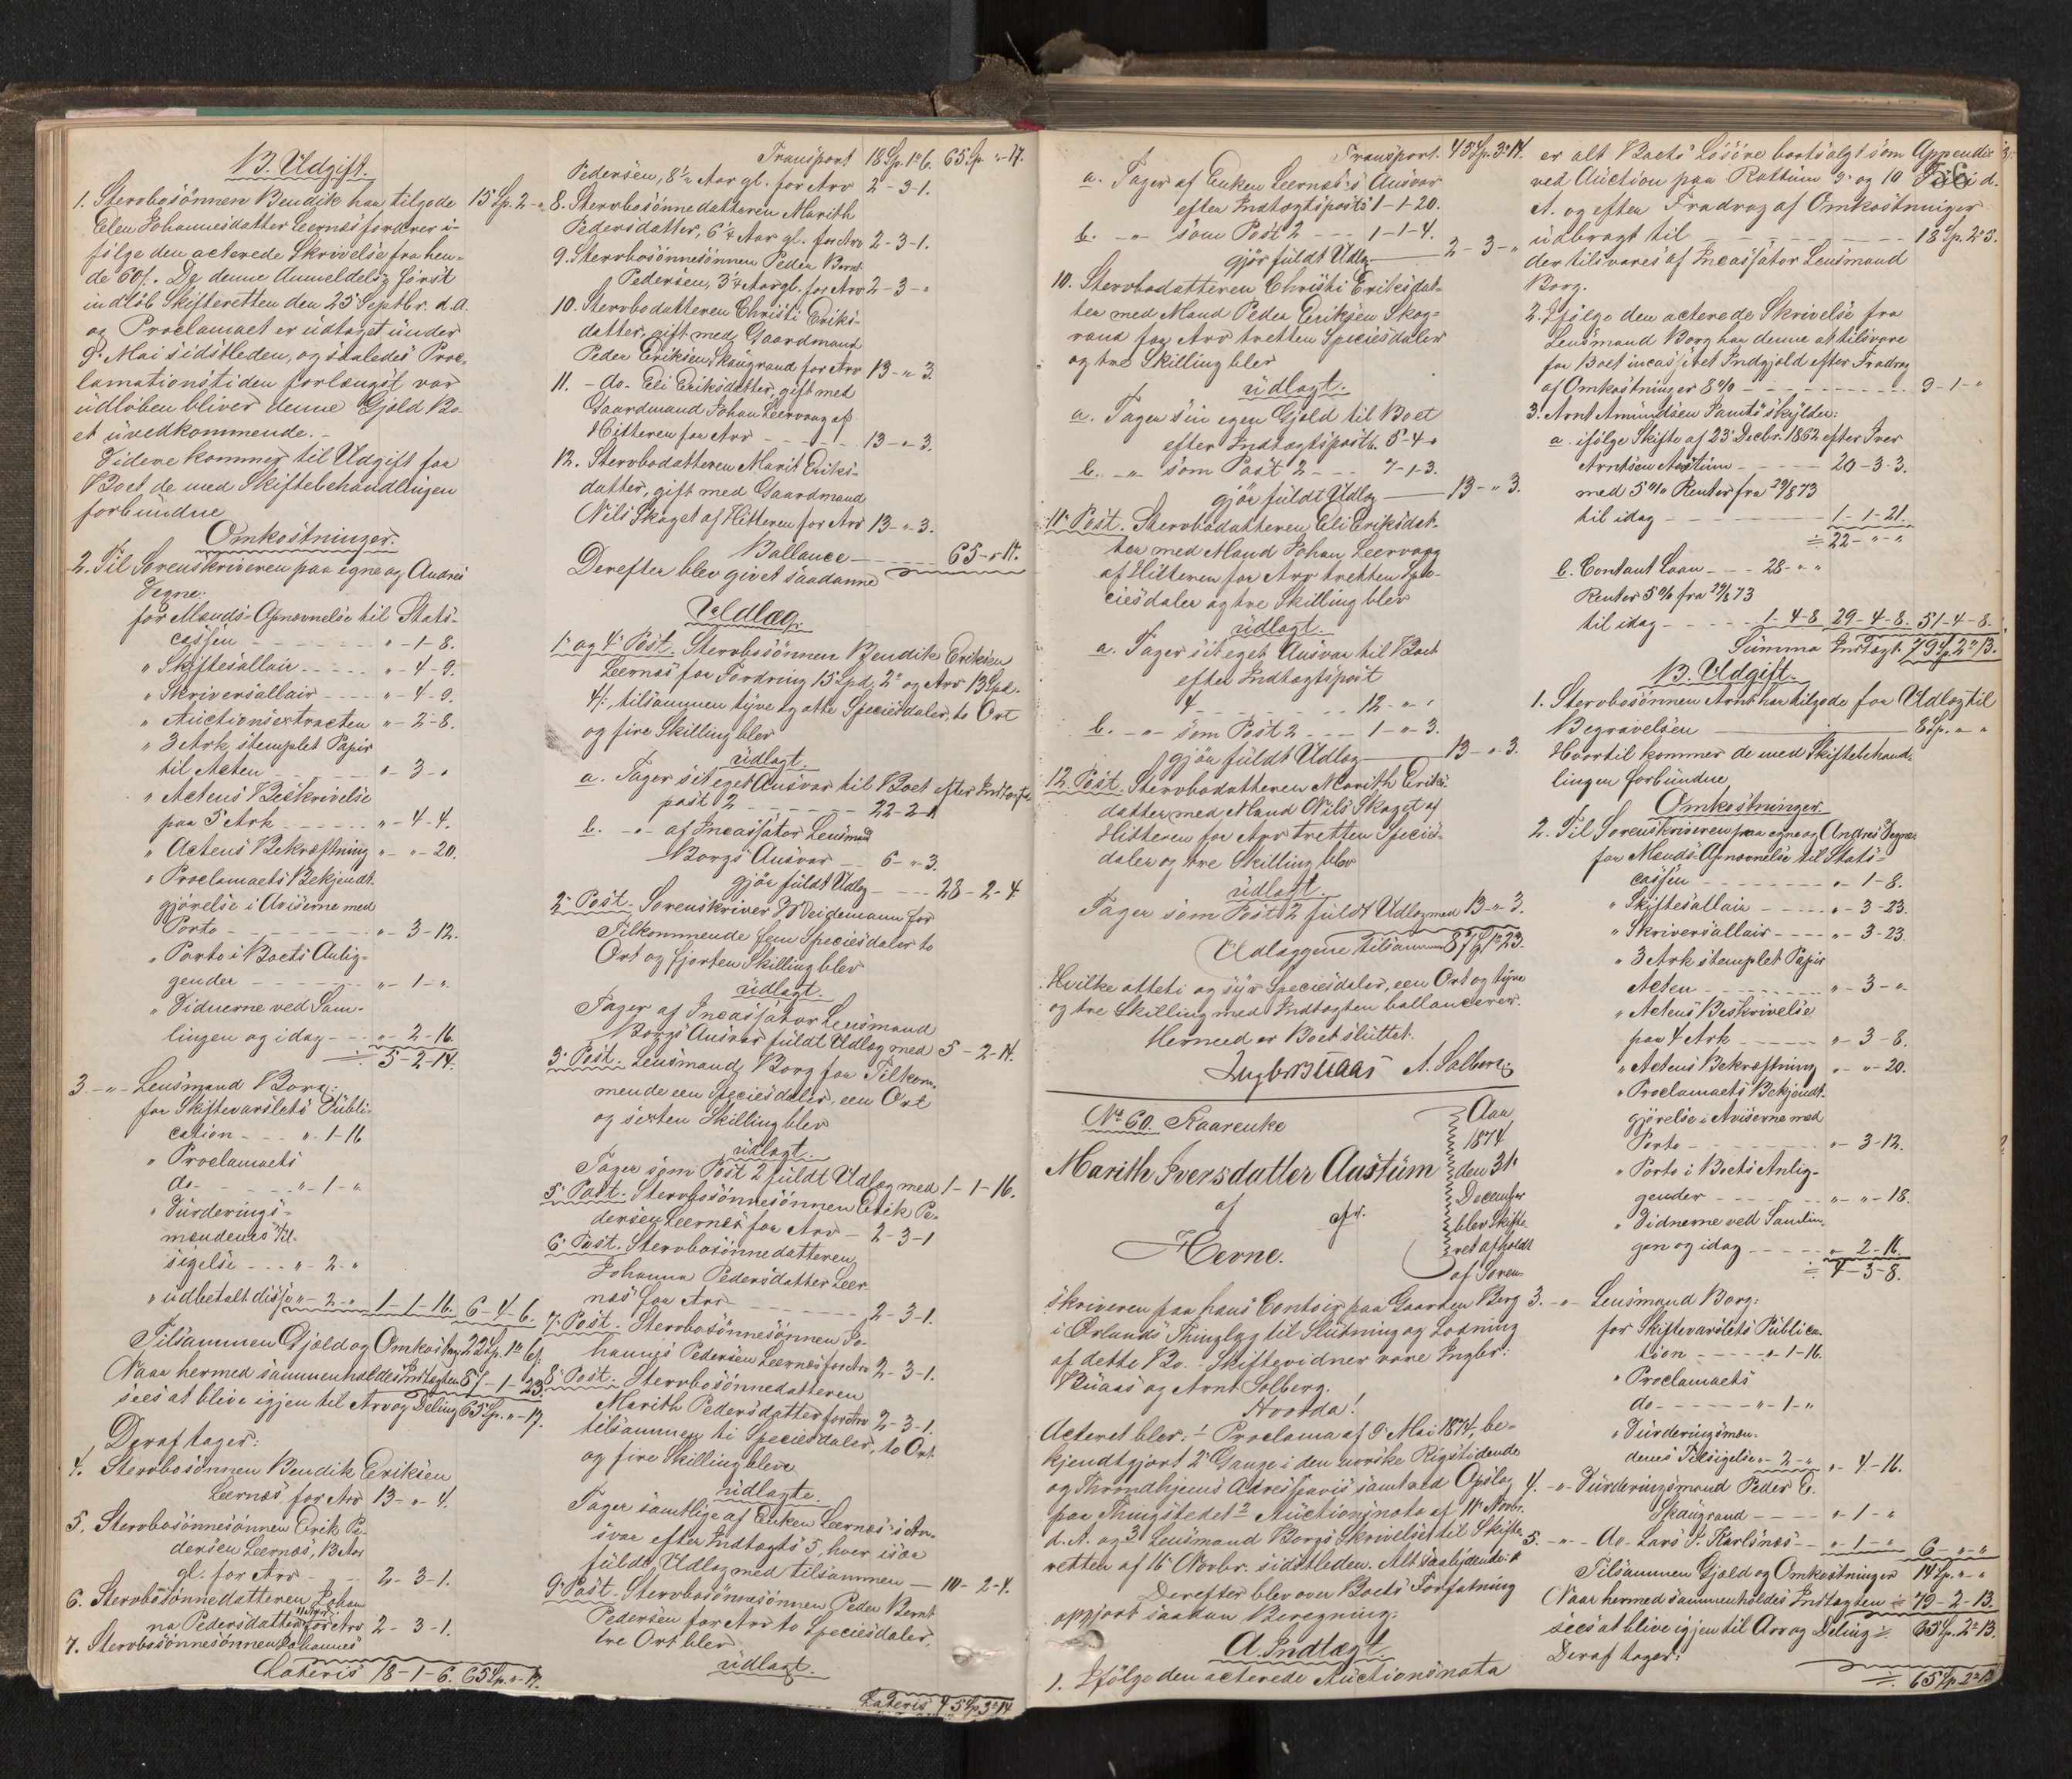 B. Udgift.
1. Stervbosönnen Bendik har tilgode 15 Sp. 2 - "
Elen Johannesdatter Leernæs fordrer i-
følge den acterede Skrivelse fra hen-
de 60/. Da denne Anmeldelse først
indløb Skifteretten den 25' Septbr. d. A.
og Proclamaet er udtaget under
9' Mai sidstleden, og saaledes Proc-
lamationstiden forlængst var
udløben bliver denne Gjæld Bo-
et uvedkommende. -
Videre kommer til Udgift for
Boet de med Skiftebehandlingen
forbundne
Omkostninger.
2. Til Sorenskriveren paa egne og Andres
Vegne:
for Mænds-Opnævnelse til Stats-
cassen - - - " - 1 - 8.
" Skiftesallair - - - " - 4 - 9.
" Skriversallair - - - " - 4 - 9.
" Auctionsextracten " - 2 - 8.
" 3 Ark stemplet Papir
til Acten - - - " - 3 - "
" Actens Beskrivelse
paa 5 Ark - - - " - 4 - 4.
" Actens Bekræftning " - " - 20.
" Proclamaets Bekjendt-
gjørelse i Aviserne med
Porto - - - " - 3 - 12.
" Porto i Boets Anlig-
gender - - - " - 1 - ".
" Vidnerne ved Sam-
lingen og idag - - " - 2 - 16.
5 - 2 - 14.
3 - " - Lensmand Borg:
for Skiftevarslets Publi-
cation - - " - 1 - 16
" Proclamaets
do - - - " - 1 - "
" Vurderings-
mændenes Til-
sigelse - - - " - 2 - "
" udbetalt disse " - 2 - " 1 - 1 - 16. 6 - 4 - 6.
Tilsammen Gjæld og Omkostn. 22 Sp. 1 Ort 6 s.
Naar hermed sammenholdes Indtægten 87 - 1 - 23.
sees at blive igjen til Arv og Deling 65 Sp. " - 17.
Deraf tager:
4. Stervbosönnen Bendik Eriksen
Leernæs, for Arv 13 - " - 4.
5. Stervbosönnesönnen Erik Pe-
dersen Leernæs, 13 Aar
gl. for Arv - - 2 - 3 - 1.
6. Stervbosönnedatteren Johan
na Pedersdatter 11 Aar for Arv 2 - 3 - 1.
7. Stervbosönnesönnen Johannes
Lateris 18 - 1 - 6. 65 Sp. " - 17.
Transport 18 Sp. 1 Ort 6. 65 Sp " - 17.
Pedersen, 8 1/2 Aar gl. for Arv 2 - 3 - 1.
8. Stervbosönnedatteren Marith
Pedersdatter, 6 1/4 Aar gl. for Arv 2 - 3 - 1.
9. Stervbosönnesönnen Peder Bernt
Pedersen, 3 1/4 Aar gl. for Arv 2 - 3 - "
10. Stervbodatteren Christi Eriks-
datter, gift med Gaardmand
Peder Eriksen Skaugrand for Arv 13 - " 3.
11. - do - Eli Eriksdatter, gift med
Gaardmand Johan Leervaag af
Hitteren for Arv - - - 13 - " 3.
12. Stervbodatteren Marit Eriks-
datter, gift med Gaardmand
Nils Skaget af Hitteren for Arv 13 - " 3.
Ballance - - - 65 - " 17.
Derefter blev givet saadanne
Udlæg.
1' og 4' Post. Stervbosönnen Bendik Eriksen
Leernæs for Fordring 15 Spd. 2 Ort og Arv 13 Spd.
4 s., tilsammen tyve og otte Speciesdaler, to Ort
og fire Skilling blev
udlagt.
a. Tager sit eget Ansvar til Boet efter Indtægts
post 2 - - - 22 - 2 - 1
b. - " - af Incassator Lensmd
Borgs Ansvar - - 6 - " 3.
gjør fuldt Udlæg - - - 28 - 2 - 4
2' Post. Sorenskriver Weidemann for
Tilkommende fem Speciesdaler to
Ort og fjorten Skilling blev
udlagt.
Tager af Incassator Lensmand
Borgs Ansvar fuldt Udlæg med 5 - 2 - 14.
3' Post. Lensmand Borg for Tilkom-
mende een Speciesdaler, een Ort
og sexten Skilling blev
udlagt.
Tager som Post 2 fuldt Udlæg med 1 - 1 - 16.
5' Post. Stervbosönnesönnen Erik Pe-
dersen Leernæs for Arv - 2 - 3 - 1
6' Post. Stervbosönnedatteren
Johanna Pedersdatter Leer-
næs for Arv - - - 2 - 3 - 1.
7' Post. Stervbosönnesönnen Jo-
hannes Pedersen Leernæs for Arv 2 - 3 - 1.
8' Post. Stervbosönnedatteren
Marith Pedersdatter for Arv 2 - 3 - 1.
tilsammen ti Speciesdaler, to Ort
og fire Skilling bleve
udlagte.
Tager samtlige af Enken Leernæs's An-
svar efter Indtægts 5, hver især
fuldt Udlæg med tilsammen - 10 - 2 - 4.
9' Post. Stervbosönnesönnen Peder Bernt
Pedersen for Arv to Speciesdaler,
tre Ort blev
udlagt.
Lateris 45 Sp. 3 Ort 14
Transport. 45 Sp. 3 Ort 14.
a. Tager af Enken Leernæs's Ansvar
efter Indtægtspost 5 1 - 1 - 20.
b. - " - som Post 2 - - - 1 - 1 - 4.
gjør fuldt Udlæg - 2 - 3 - "
10. Stervbodatteren Christi Eriksdat-
ter med Mand Peder Eriksen Skog-
rand for Arv tretten Speciesdaler
og tre Skilling blev
udlagt.
a. Tager sin egen Gjæld til Boet
efter Indtægtspost 6. 5 - 4 - "
b. - " - som Post 2 - - - 7 - 1 - 3.
gjør fuldt Udlæg - 13 - " 3.
11' Post. Stervbodatteren Eli Eriksdat-
ter med Mand Johan Leervaag
af Hitteren for Arv tretten Spe-
ciesdaler og tre Skilling blev
udlagt.
a. Tager sit eget Ansvar til Boet
efter Indtægtspost
4 - - - 12 - " "
b. - " - som Post 2 - - - 1 - " 3.
gjør fuldt Udlæg - 13 - " 3.
12. Post. Stervbodatteren Marith Eriks-
datter med Mand Nils Skaget af
Hitteren for Arv tretten Specie-
daler og tre Skilling blev
udlagt.
Tager som Post 2 fuldt Udlæg med 13 - " 3.
Udlæggene tilsammen 87 Sp 1 Ort 23.
Hvilke otteti og syv Speciesdaler, een Ort og tyve
og tre Skilling med Indtægten ballancerer.
Hermed er Boet sluttet.
Ingbr Buaas A. Solberg
No. 60. Kaarenke
Marith Iversdatter Aastum
af
Hevne.
Aar
1874
den 31'
December
blev Skifte-
ret afholdt
af Soren-
skriveren paa hans Contoir paa Gaarden Berg
i Ørlands Thinglag til Slutning og Lodning
af dette Bo. - Skiftevidner vare Ingbr.
Buaas og Arnt Solberg.
Hvorda!
Acteret blev: 1 Proclama af 9' Mai 1874, be-
kjendtgjort 2' Gange i den norske Rigstidende
og Throndhjems Adresseavis samt ved Opslag
paa Thingstedet 2 Auctionsnota af 11' Novbr.
d. A. og 3 Lensmand Borgs Skrivelse til Skifte-
retten af 16' Novbr. sidstleden. Alt saalydende:
Derefter blev over Boets Forfatning
opgjort saadan Beregning:
A. Indtægt.
1. Ifølge den acterede Auctionsnota
er alt Boets Løsøre bortsolgt som Appendix
ved Auction paa Rottum 9' og 10 Juli d.
A. og efter Fradrag af Omkostninger
udbragt til - - - 18 Sp. 2 Ort 5.
der tilsvares af Incassator Lensmand
Borg.
2. Ifølge den acterede Skrivelse fra
Lensmand Borg har denne at tilsvare
for Boet incasseret Indgjæld efter Fradrag
af Omkostninger 8% - - - 9 - 1 - "
3. Arnt Amundsen Jamts skylder:
a. ifølge Skifte af 23' Decbr. 1862 efter Iver
Arntsen Aastum - - - 20 - 3 - 3.
med 5% Renter fra 29/8 73
til idag - - - 1 - 1 - 21.
22 - " - "
b. Contant Laan - - - 28 - " "
Renter 5% fra 29/8 73
til idag - - - 1 - 4 - 8 29 - 4 - 8. 51 - 4 - 8.
Summa Indtægt 79 Sp. 2 Ort 13.
B. Udgift.
1. Stervbosönnen Arnt har tilgode for Udlæg til
Begravelsen - 8 Sp. " "
Hvortil kommer de med Skiftebehand-
lingen forbundne
Omkostninger.
2. Til Sorenskriveren paa egne og Andres Vegne:
for Mænds-Opnævnelse til Stats-
cassen - - - " - 1 - 8.
" Skiftesallair - - - " - 3 - 23.
" Skriversallair - - - " - 3 - 23.
" 3 Ark stemplet Papir
Acten - - - " - 3 - ".
" Actens Beskrivelse
paa 4 Ark - - - " - 3 - 8.
" Actens Bekræftning " - " - 20.
" Proclamaets Bekjendt-
gjørelse i Aviserne med
Porto - - - " - 3 - 12.
" Porto i Boets Anlig-
gender - - - " - " - 18.
" Vidnerne ved Samlin-
gen og idag - - - " - 2 - 16.
4 - 3 - 8.
3. - " - Lensmand Borg:
for Skiftevarslets Publica-
tion - - - " - 1 - 16.
" Proclamaets
do - - - " - 1 - "
" Vurderingsmæn-
denes Tilsigelse " - 2 - " " - 4 - 16.
4. - " - Vurderingsmand Peder E.
Skaugrand - - - " - 1 - "
5. - " - do - Lars J. Karlsnæs - - " - 1 - " 6 - " - "
Tilsammen Gjæld og Omkostninger 14 Sp. " "
Naar hermed sammenholdes Indtægten 79 - 2 - 13.
sees at blive igjen til Arv og Deling 65 Sp. 2 Ort 13.
Deraf tager:
65 Sp 2 Ort 13